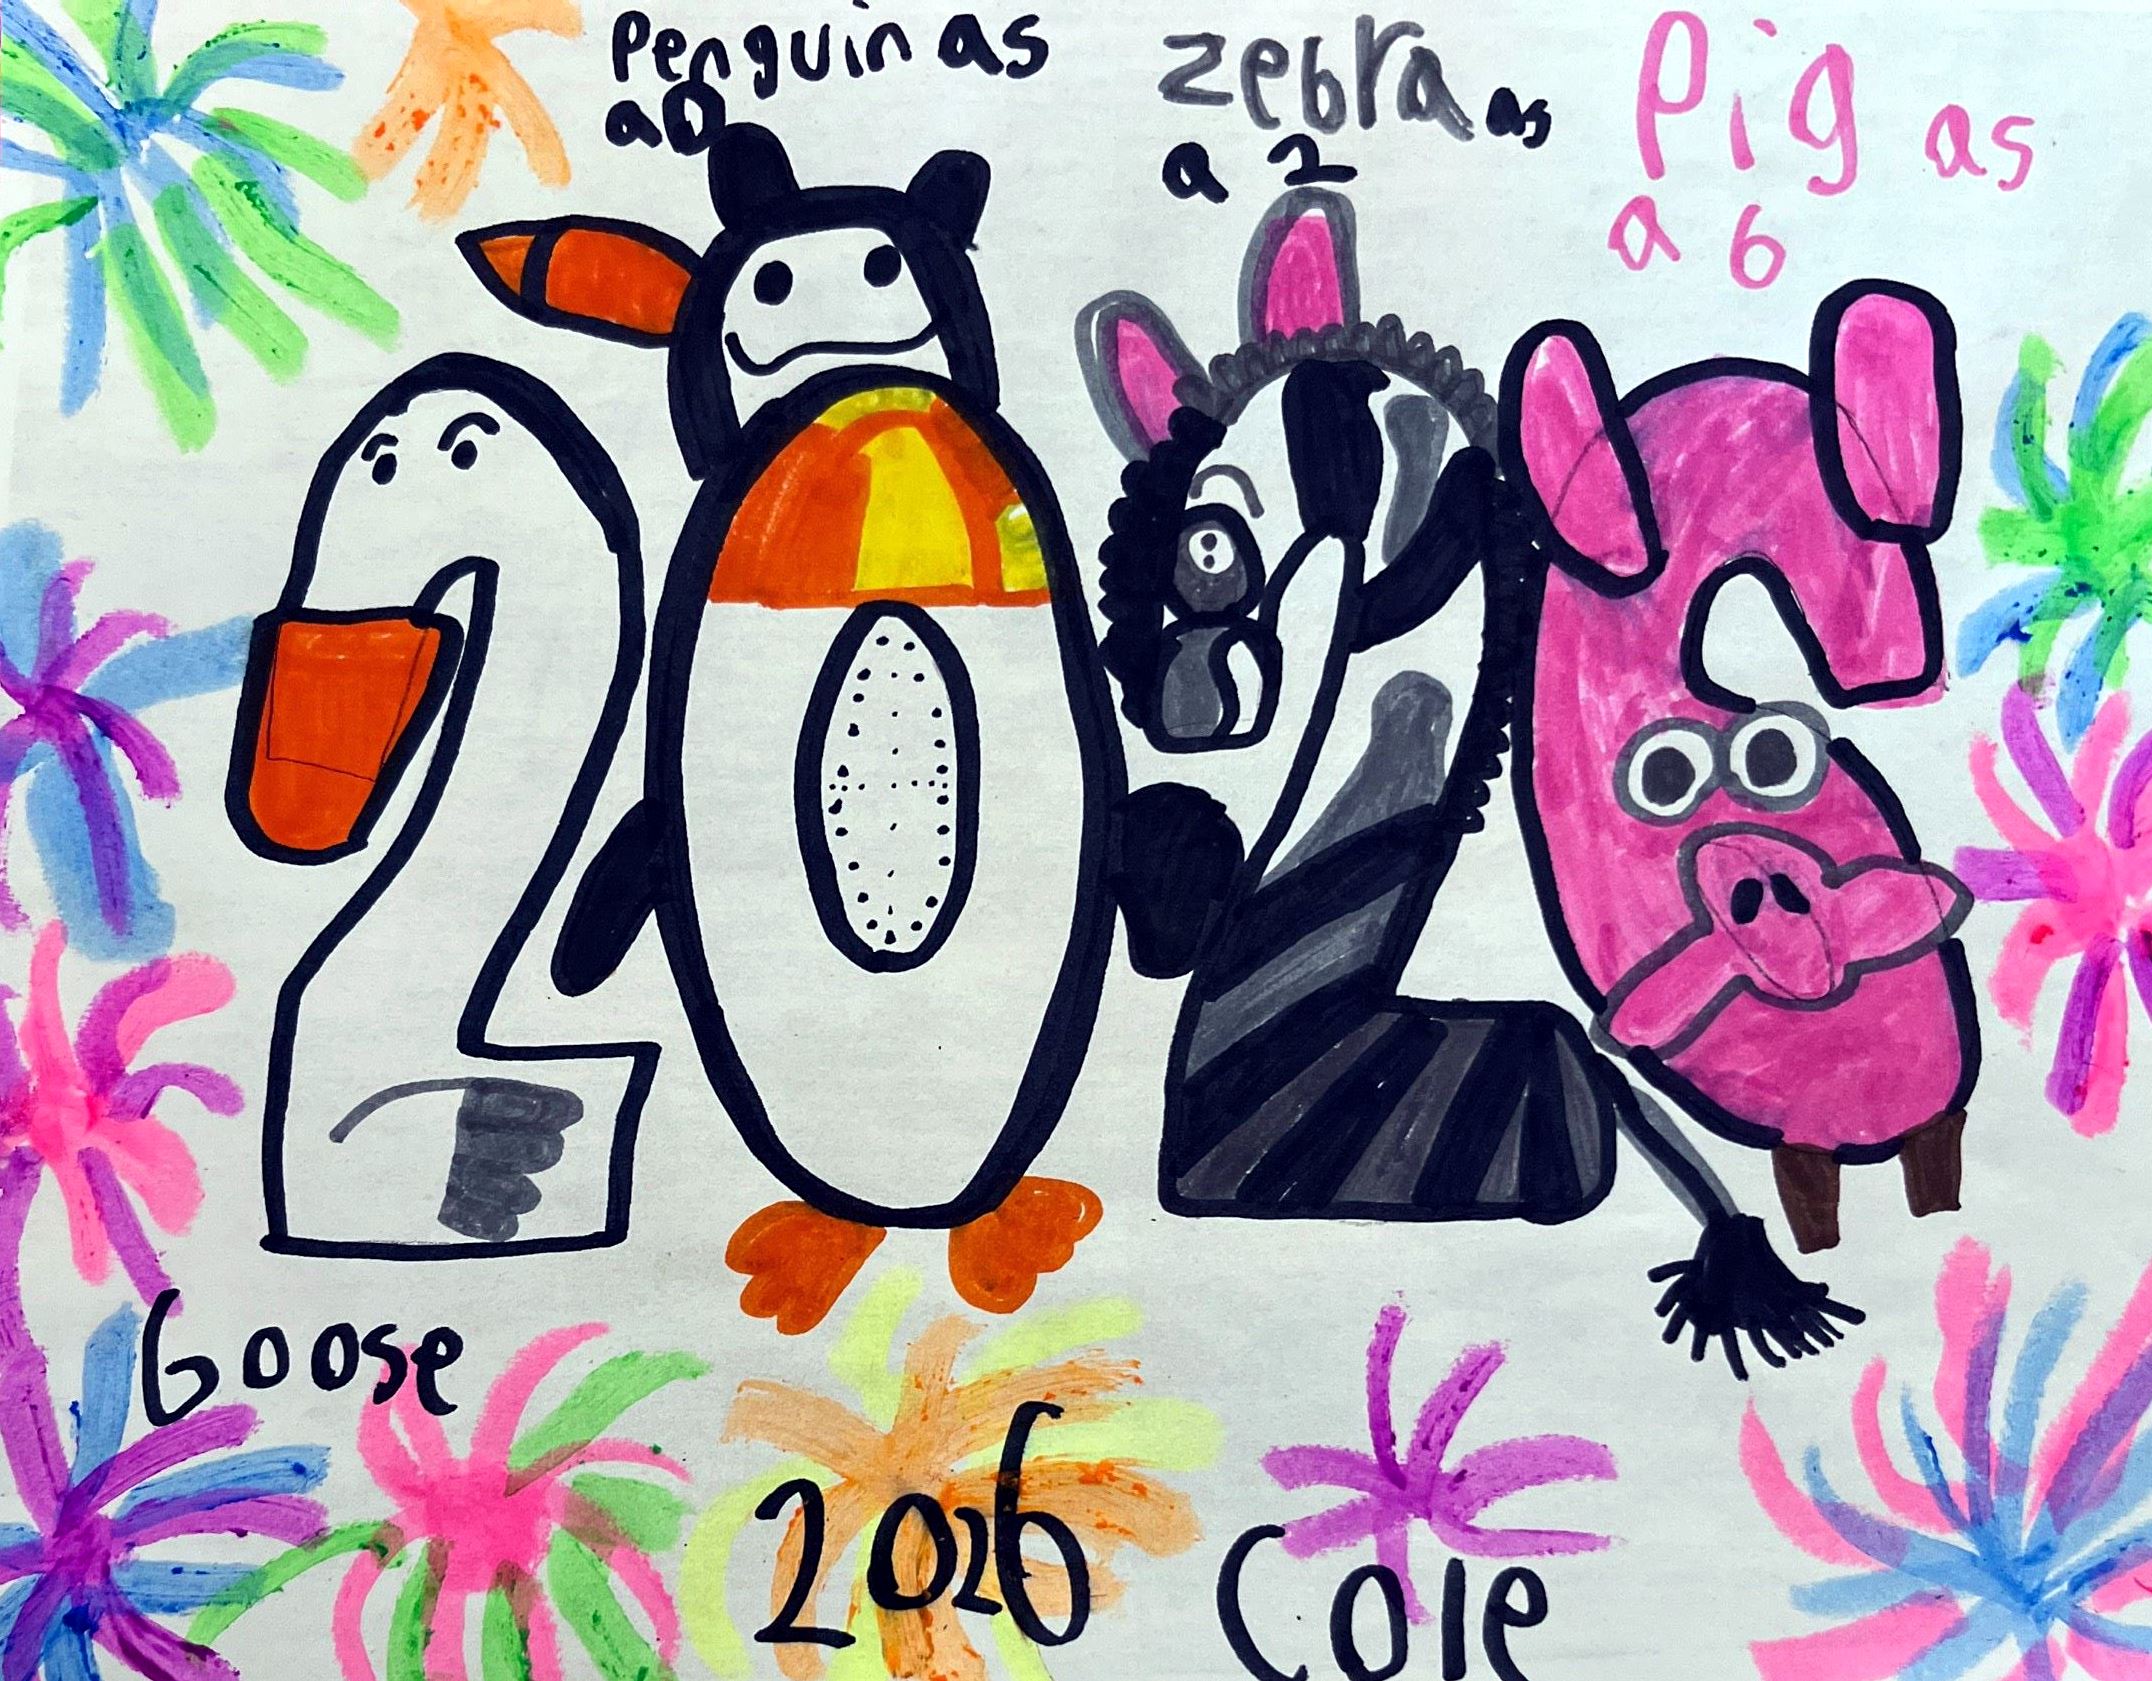 Penguin as
a 0
Zebra as
a 2
Pig as
a 6
Goose
2026
Cole